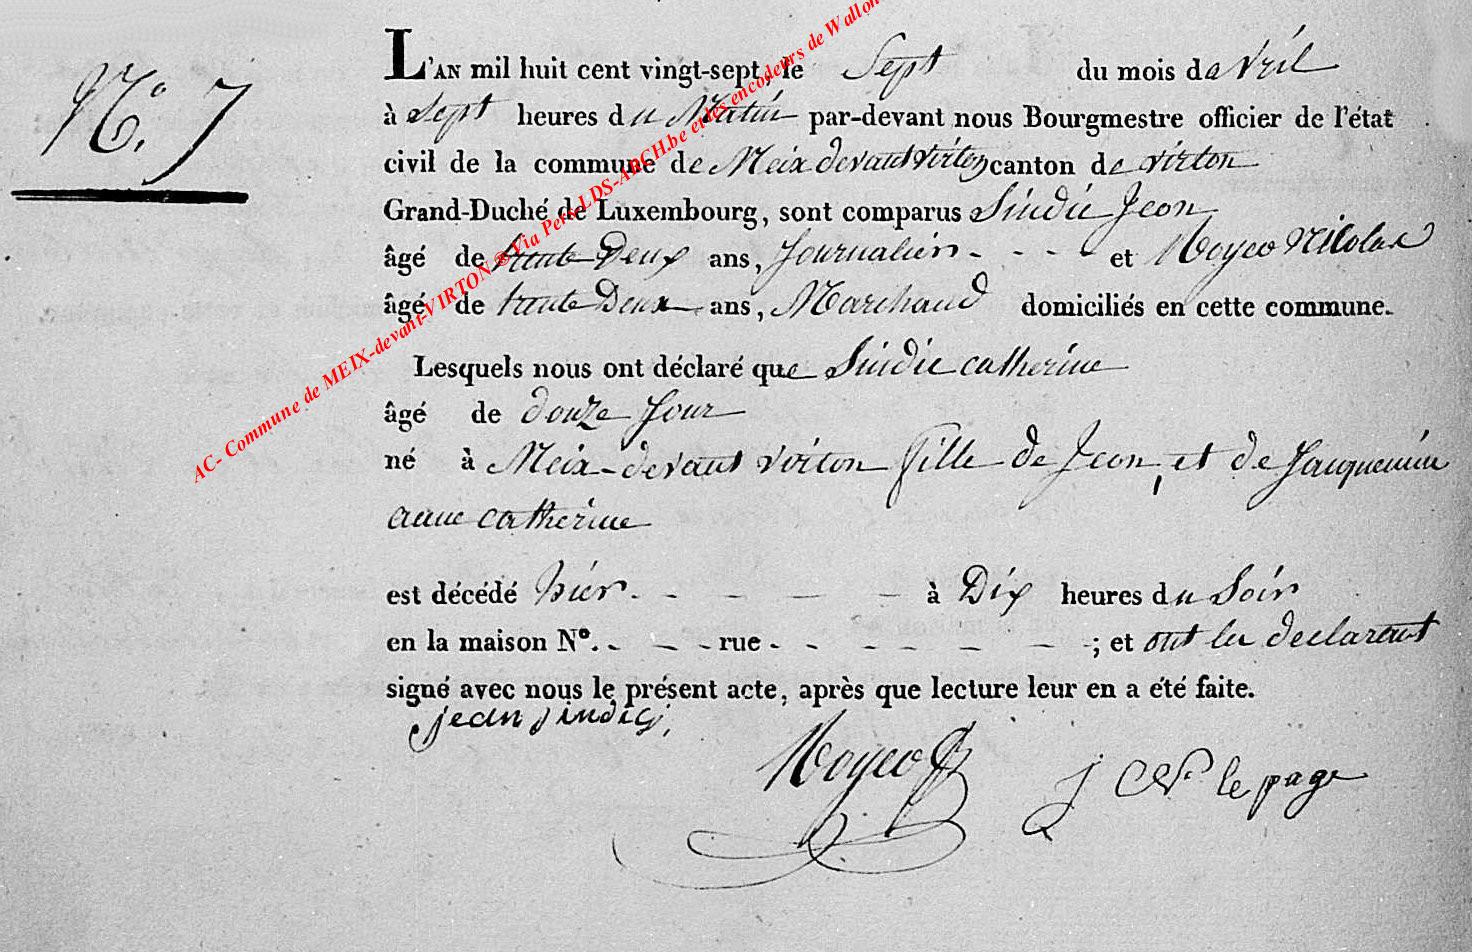 N.° 7
L'AN mil huit cent vingt-sept, le Sept du mois d'avril
à Sept heures du Matin par-devant nous Bourgmestre officier de l'état
civil de la commune de Meix devant virton canton de virton
Grand-Duché de Luxembourg, sont comparus Sindic Jean
âgé de trente Deux ans, Journalier - - - - et Noyco Nicolas
âgé de trente Deux ans, Marchand domiciliés en cette commune.
Lesquels nous ont déclaré que Sindic catherine
âgé de douze Jour
né à Meix-devant virton fille de Jean, et de Jacquemin
anne catherine
est décédé hier - - - - - à Dix heures du Soir
en la maison N°. - - - rue - - - - - - - ; et ont les declarent
signé avec nous le présent acte, après que lecture leur en a été faite.
jean sindic,
Noyco
J le page
AC- Commune de MEIX-devant-VIRTON @ Via Pers LDS-ARCH.be et les encodeurs de Wallon